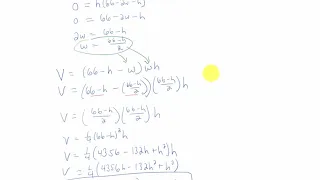 0 = h(66-2w-h)
0 = 66-2w-h
2w = 66-h
w = 66-h/2
V = (66-h-w)wh
V = (66-h-(66-h/2))(66-h/2)h
V = (66-h/2)(66-h/2)h
V = 1/4(66-h)²h
V = 1/4(4356-132h+h²)h
V = 1/4(4356h-132h²+h³)